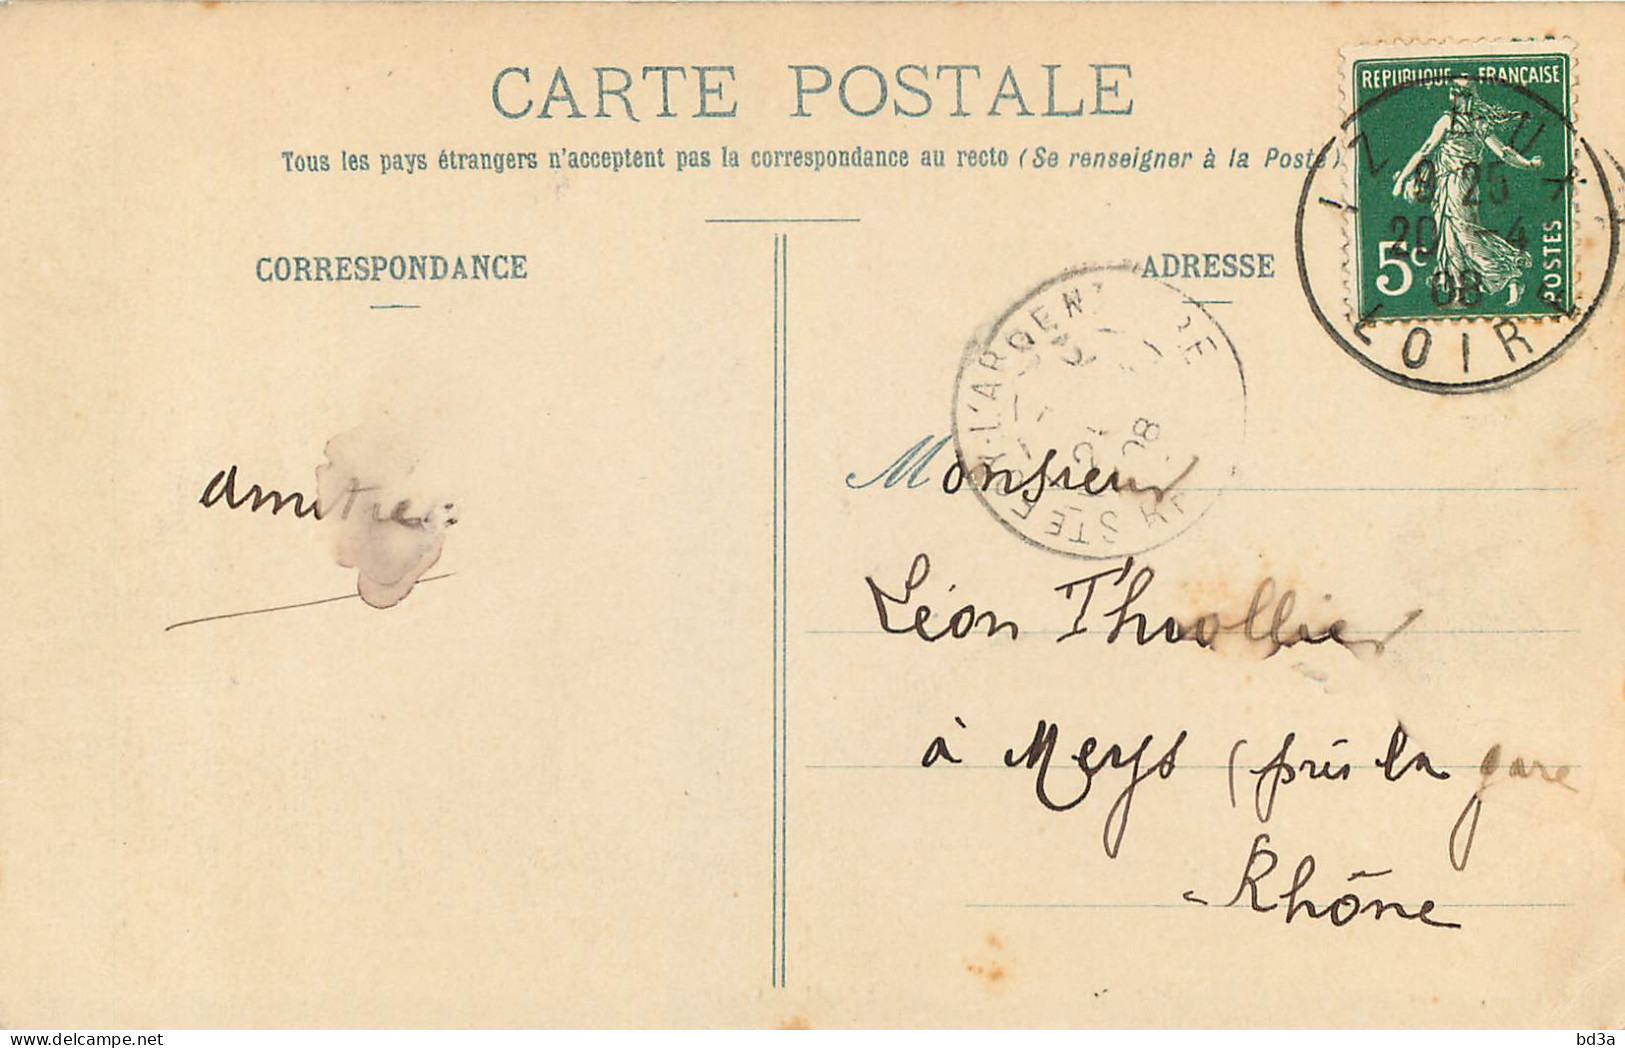 CARTE POSTALE
Tous les pays étrangers n'acceptent pas la correspondance au recto (Se renseigner à la Poste)
CORRESPONDANCE
ADRESSE
REPUBLIQUE FRANÇAISE
5c POSTES
9 25
20 -4
08
LOIRE
L'ARGENTIERE
08
Monsieur
Léon Thiollier
à Meys (près la gare
Rhône
bd3a